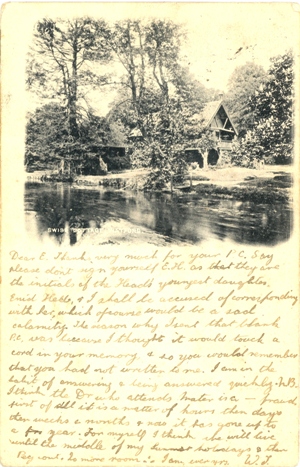 SWISS COTTAGE,
Dear E. Thank very much for your P.C. Say
please dont sign yourself E.H. as that they are
the initials of the Head's youngest daughter,
Enid Hable, & I shall be accused of corresponding
with her, which of course would be a sad
calamity. The reason why I sent that blank
P.C. was because I thought it would touch a
cord in your memory, & so you would remember
that you had not written to me. I am in the
habit of answering & being answered quickly. N.B.
I think the Dr. who attends Mater is a fraud,
first of all it is a matter of hours then days
then weeks & months & now it has gone up to
a year. For myself I think she will live
until the middle of my summer holidays & then
Peg out. No more room. I am, yours